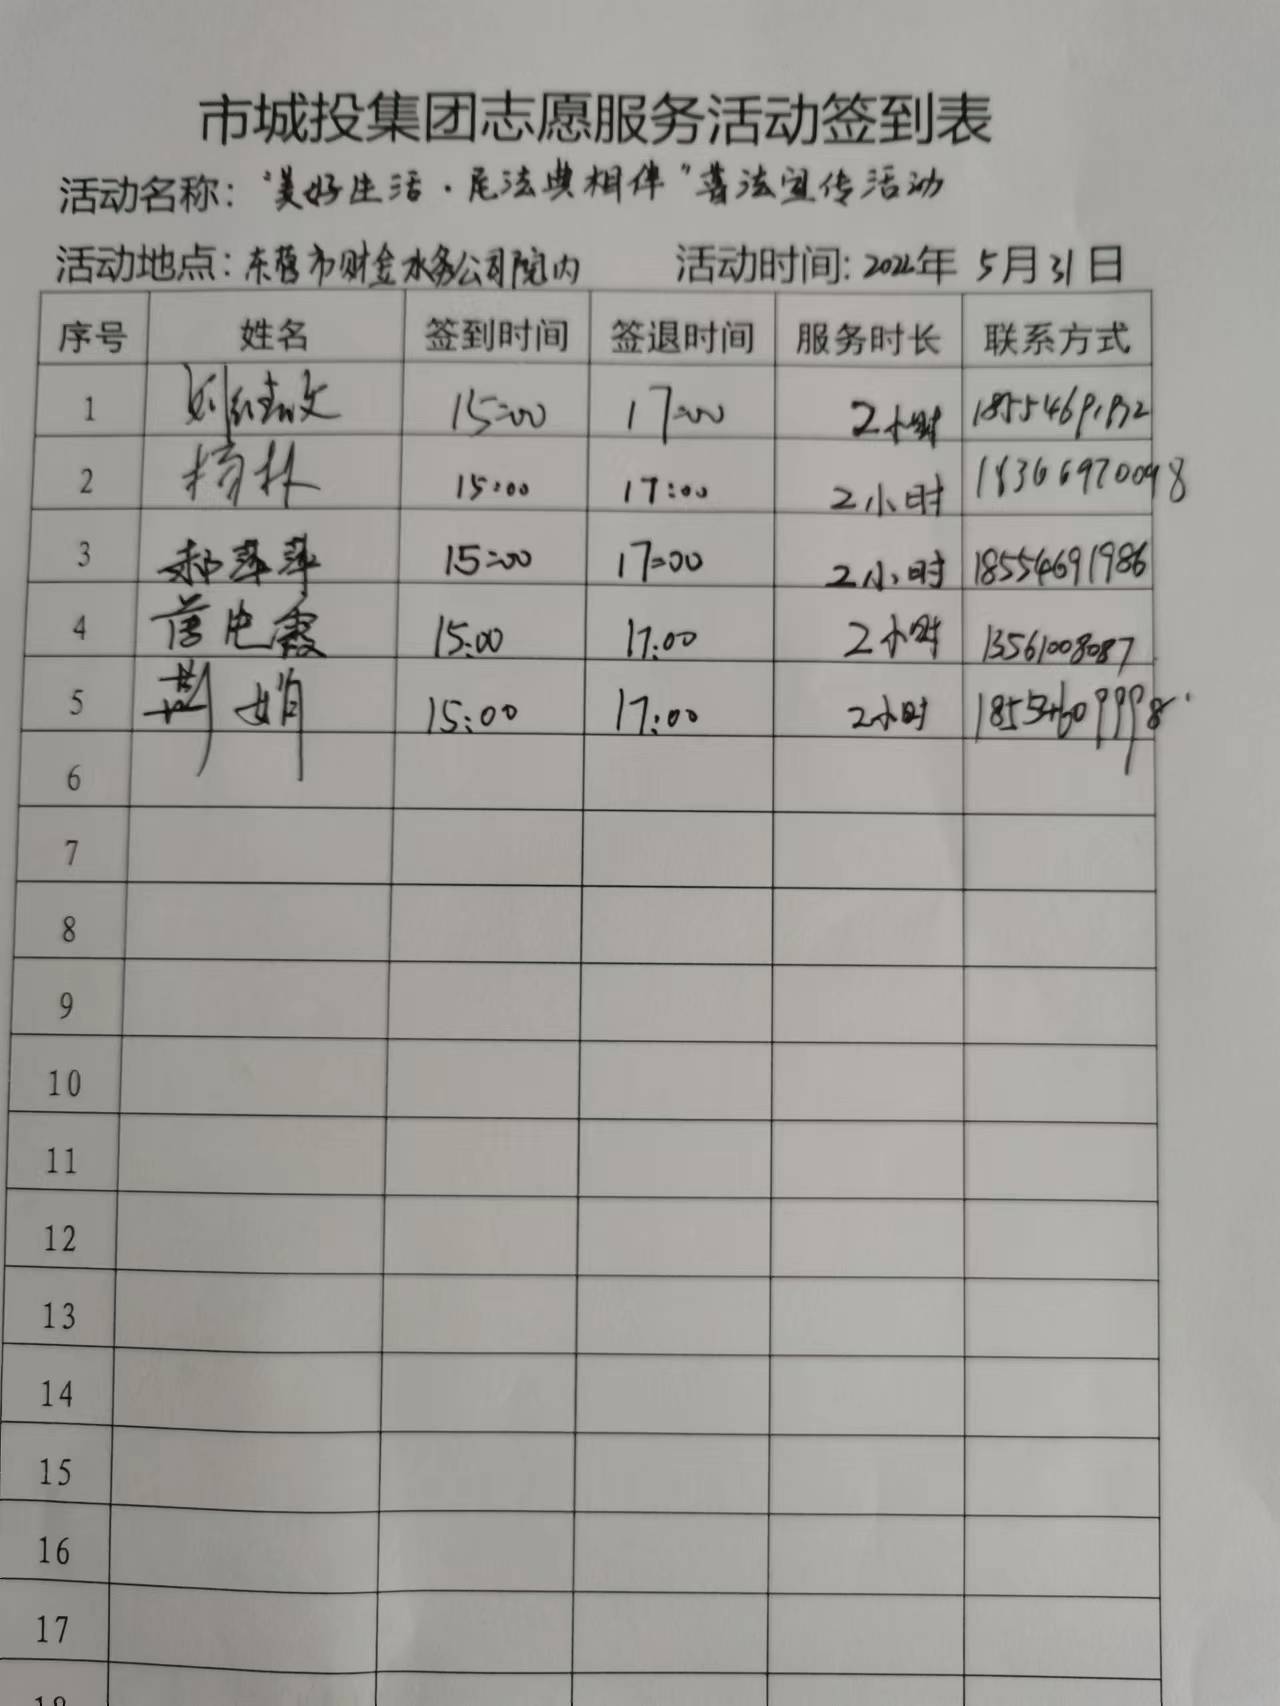 市城投集团志愿服务活动签到表
活动名称："美好生活·民法典相伴"普法宣传活动
活动地点：东营市财金水务公司院内 活动时间：2022年 5月31日
序号 姓名 签到时间 签退时间 服务时长 联系方式
1 15:00 17:00 2小时
2 杨林 15:00 17:00 2小时 18366970098
3 郝翠翠 15:00 17:00 2小时 18554691986
4 15:00 17:00 2小时 13561008087
5 荆娟 15:00 17:00 2小时 18554609998
6
7
8
9
10
11
12
13
14
15
16
17
18